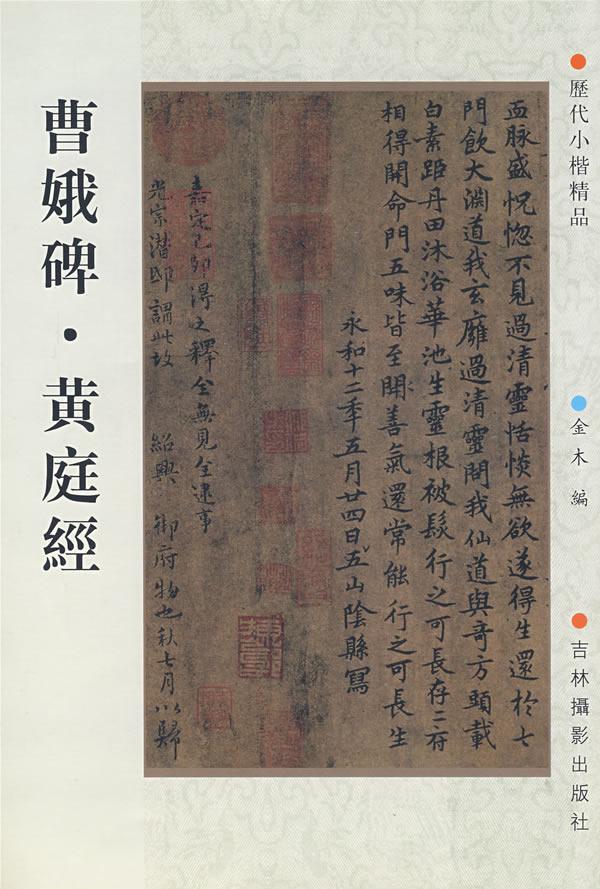 歷代小楷精品
金木 編
吉林攝影出版社
血脉盛怳惚不見過清靈恬惔無欲遂得生還於七
門飲大淵道我玄廱過清靈問我仙道與奇方頭載
白素距丹田沐浴華池生靈根被髮行之可長存二府
相得開命門五味皆至開善氣還常能行之可長生
永和十二年五月廿四日五山陰縣寫
嘉定己卯得之釋全無見全逮事
光宗潛邸謂此故 紹興 御府物也秋七月以歸
曹娥碑·黄庭經